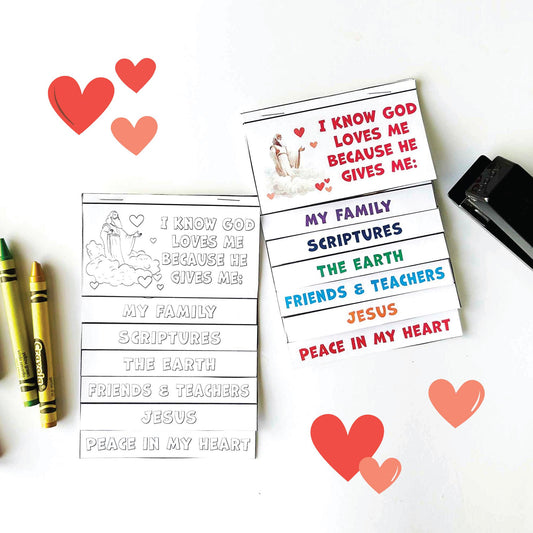 I KNOW GOD
LOVES ME
BECAUSE HE
GIVES ME:
MY FAMILY
SCRIPTURES
THE EARTH
FRIENDS & TEACHERS
JESUS
PEACE IN MY HEART
I KNOW GOD
LOVES ME
BECAUSE HE
GIVES ME:
MY FAMILY
SCRIPTURES
THE EARTH
FRIENDS & TEACHERS
JESUS
PEACE IN MY HEART
Crayola